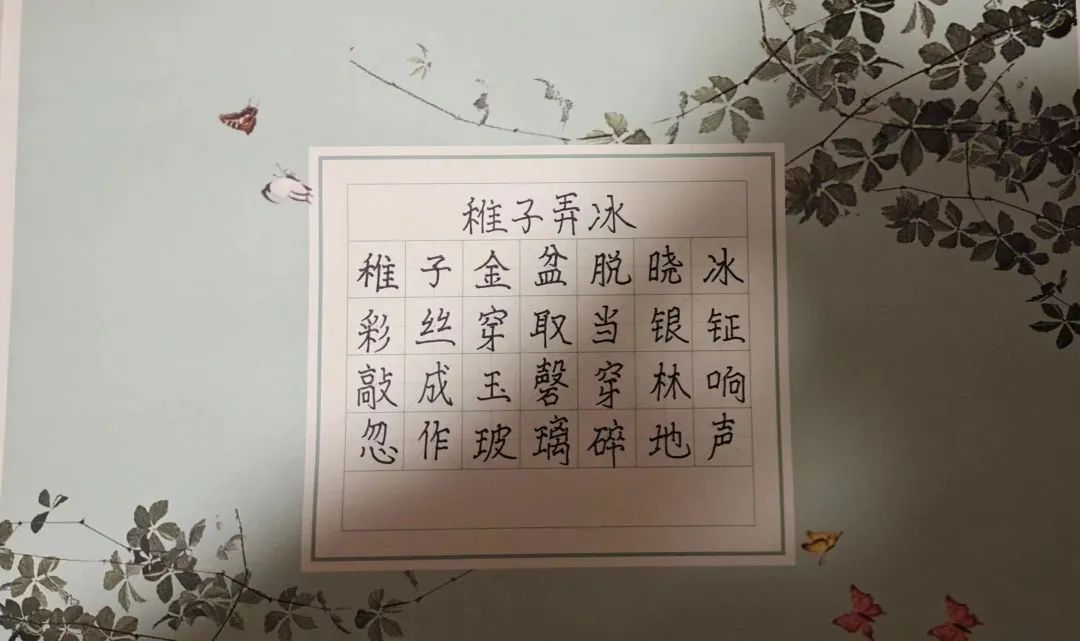 稚子弄冰
稚子金盆脱晓冰
彩丝穿取当银钲
敲成玉磬穿林响
忽作玻璃碎地声